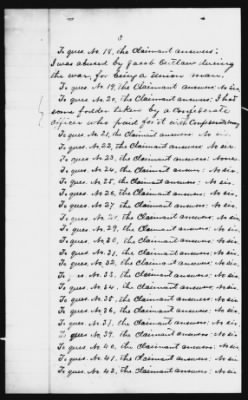 3
To ques No 18, the Claimant answers:
I was abused by Jacob Outlaw during
the war, for being a Union man.
To ques No 19, the Claimant answers: No sir.
To ques No 20, the Claimant answers: I had
some fodder taken by a Confederate
officer who paid for it with Confed. money.
To ques No. 21, the Claimant answers: No sir.
To ques No. 22, the Claimant answers: No sir.
To ques No. 23, the Claimant answers: None
To ques No. 24, the Claimant answers: No sir.
To ques No. 25, the Claimant answers: No sir.
To ques No 26, the Claimant answers: No sir.
To ques No 27, the Claimant answers: No sir.
To ques No. 28, the Claimant answers: No sir.
To ques No. 29, the Claimant answers: No sir.
To ques No. 30, the Claimant answers: No sir.
To ques No. 31, the Claimant answers: No sir.
To ques No. 32, the Claimant answers: No sir.
To es No. 33, the Claimant answers: No sir.
To ques No. 34, the Claimant answers: No sir.
To ques No. 35, the Claimant answers: No sir.
To ques No. 36, the Claimant answers: No sir.
To ques No. 37, the Claimant answers: No sir.
To ques No. 39, the Claimant answers: No sir.
To ques No. 40, the Claimant answers: No sir.
To ques No. 41, the Claimant answers: No sir.
To ques No. 42, the Claimant answers: No sir.